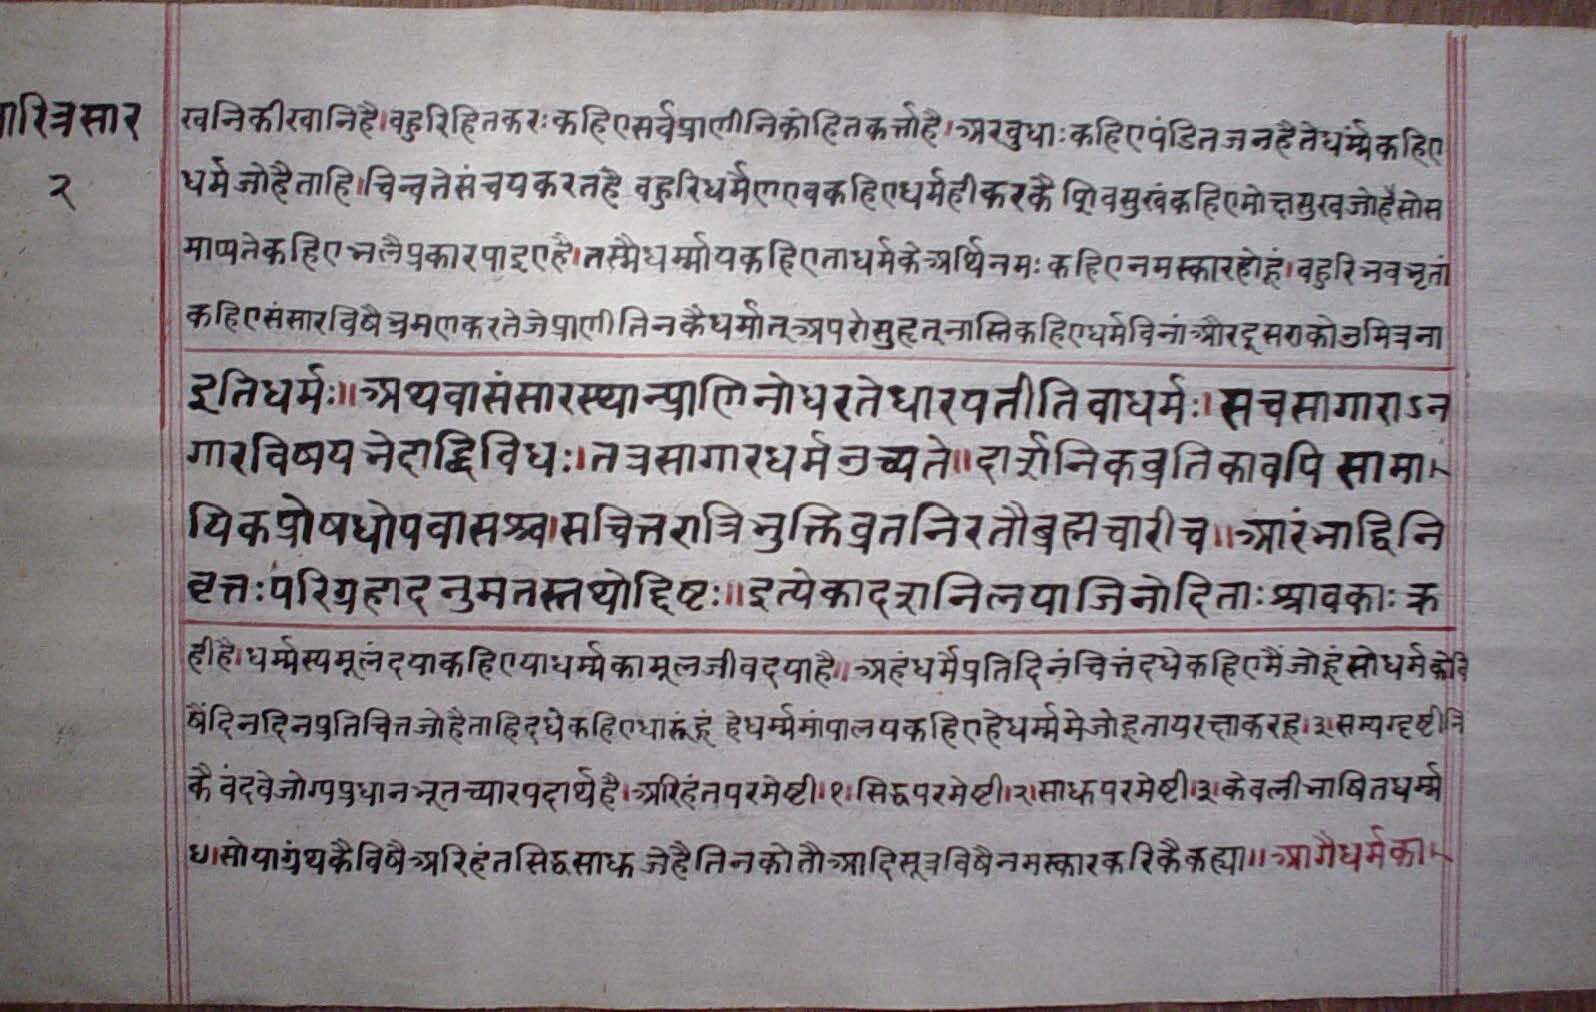 चारित्रसार
२
खनिकीखानिहै।बहुरिहितकरःकहिएसर्वप्राणीनिकोहितकर्त्ताहै।अरबुधाःकहिएपंडितजनहैतेधर्म्मकहिए
धर्मजोहैताहि।चिन्वतेसंचयकरतहै बहुरिधर्मेणएवकहिएधर्महीकरकै शिवसुखंकहिएमोक्षसुखजोहैसोस
माप्यतेकहिएभलैप्रकारपाइएहै।तस्मैधर्म्मायकहिएताधर्मकेअर्थिनमः कहिएनमस्कारहोहूं।बहुरिभवभृतां
कहिएसंसारविषैभ्रमणकरतेजेप्राणीतिनकैधर्मात्अपरोसुहृत्नास्तिकहिएधर्मविनांऔरदूसराकोउमित्रना
इतिधर्मः॥अथवासंसारस्थान्प्राणिनोधरतेधारयतीतिवाधर्मः।सचसागाराऽन
गारविषयभेदाद्द्विविधः।तत्रसागारधर्मउच्यते॥दार्शनिकव्रतिकावपि सामा
यिकप्रोषधोपवासश्च।सचित्तरात्रिभुक्तिव्रतनिरतौब्रह्मचारीच॥आरंभाद्विनि
वृत्तःपरिग्रहादनुमतस्तथोद्दिष्टः॥इत्येकादशनिलयाजिनोदिताःश्रावकाःक्र
हीहै।धर्म्मस्यमूलंदयाकहिएयाधर्म्मकामूलजीवदयाहै॥अहंधर्मेप्रतिदिनंचित्तंदधेकहिएमैंजोहूंसोधर्मकेवि
षैंदिनदिनप्रतिचितजोहैताहिदधेकहिएधारूंहूं हेधर्म्ममांपालयकहिएहेधर्म्ममेजोहूतायरक्षाकरहू।३।सम्यग्दृष्टीनि
कै वंदवेजोग्यप्रधानभूतच्यारपदार्थहै।अरिहंतपरमेष्टी।१।सिद्धपरमेष्टी।२।साधुपरमेष्टी।३।केवलीभाषितधर्म्म
४।सोयाग्रंथकैविषैअरिहंतसिद्धसाधु जेहैतिनकोतौआदिसूत्रविषैनमस्कारकरिकैकह्या॥आगैधर्मका